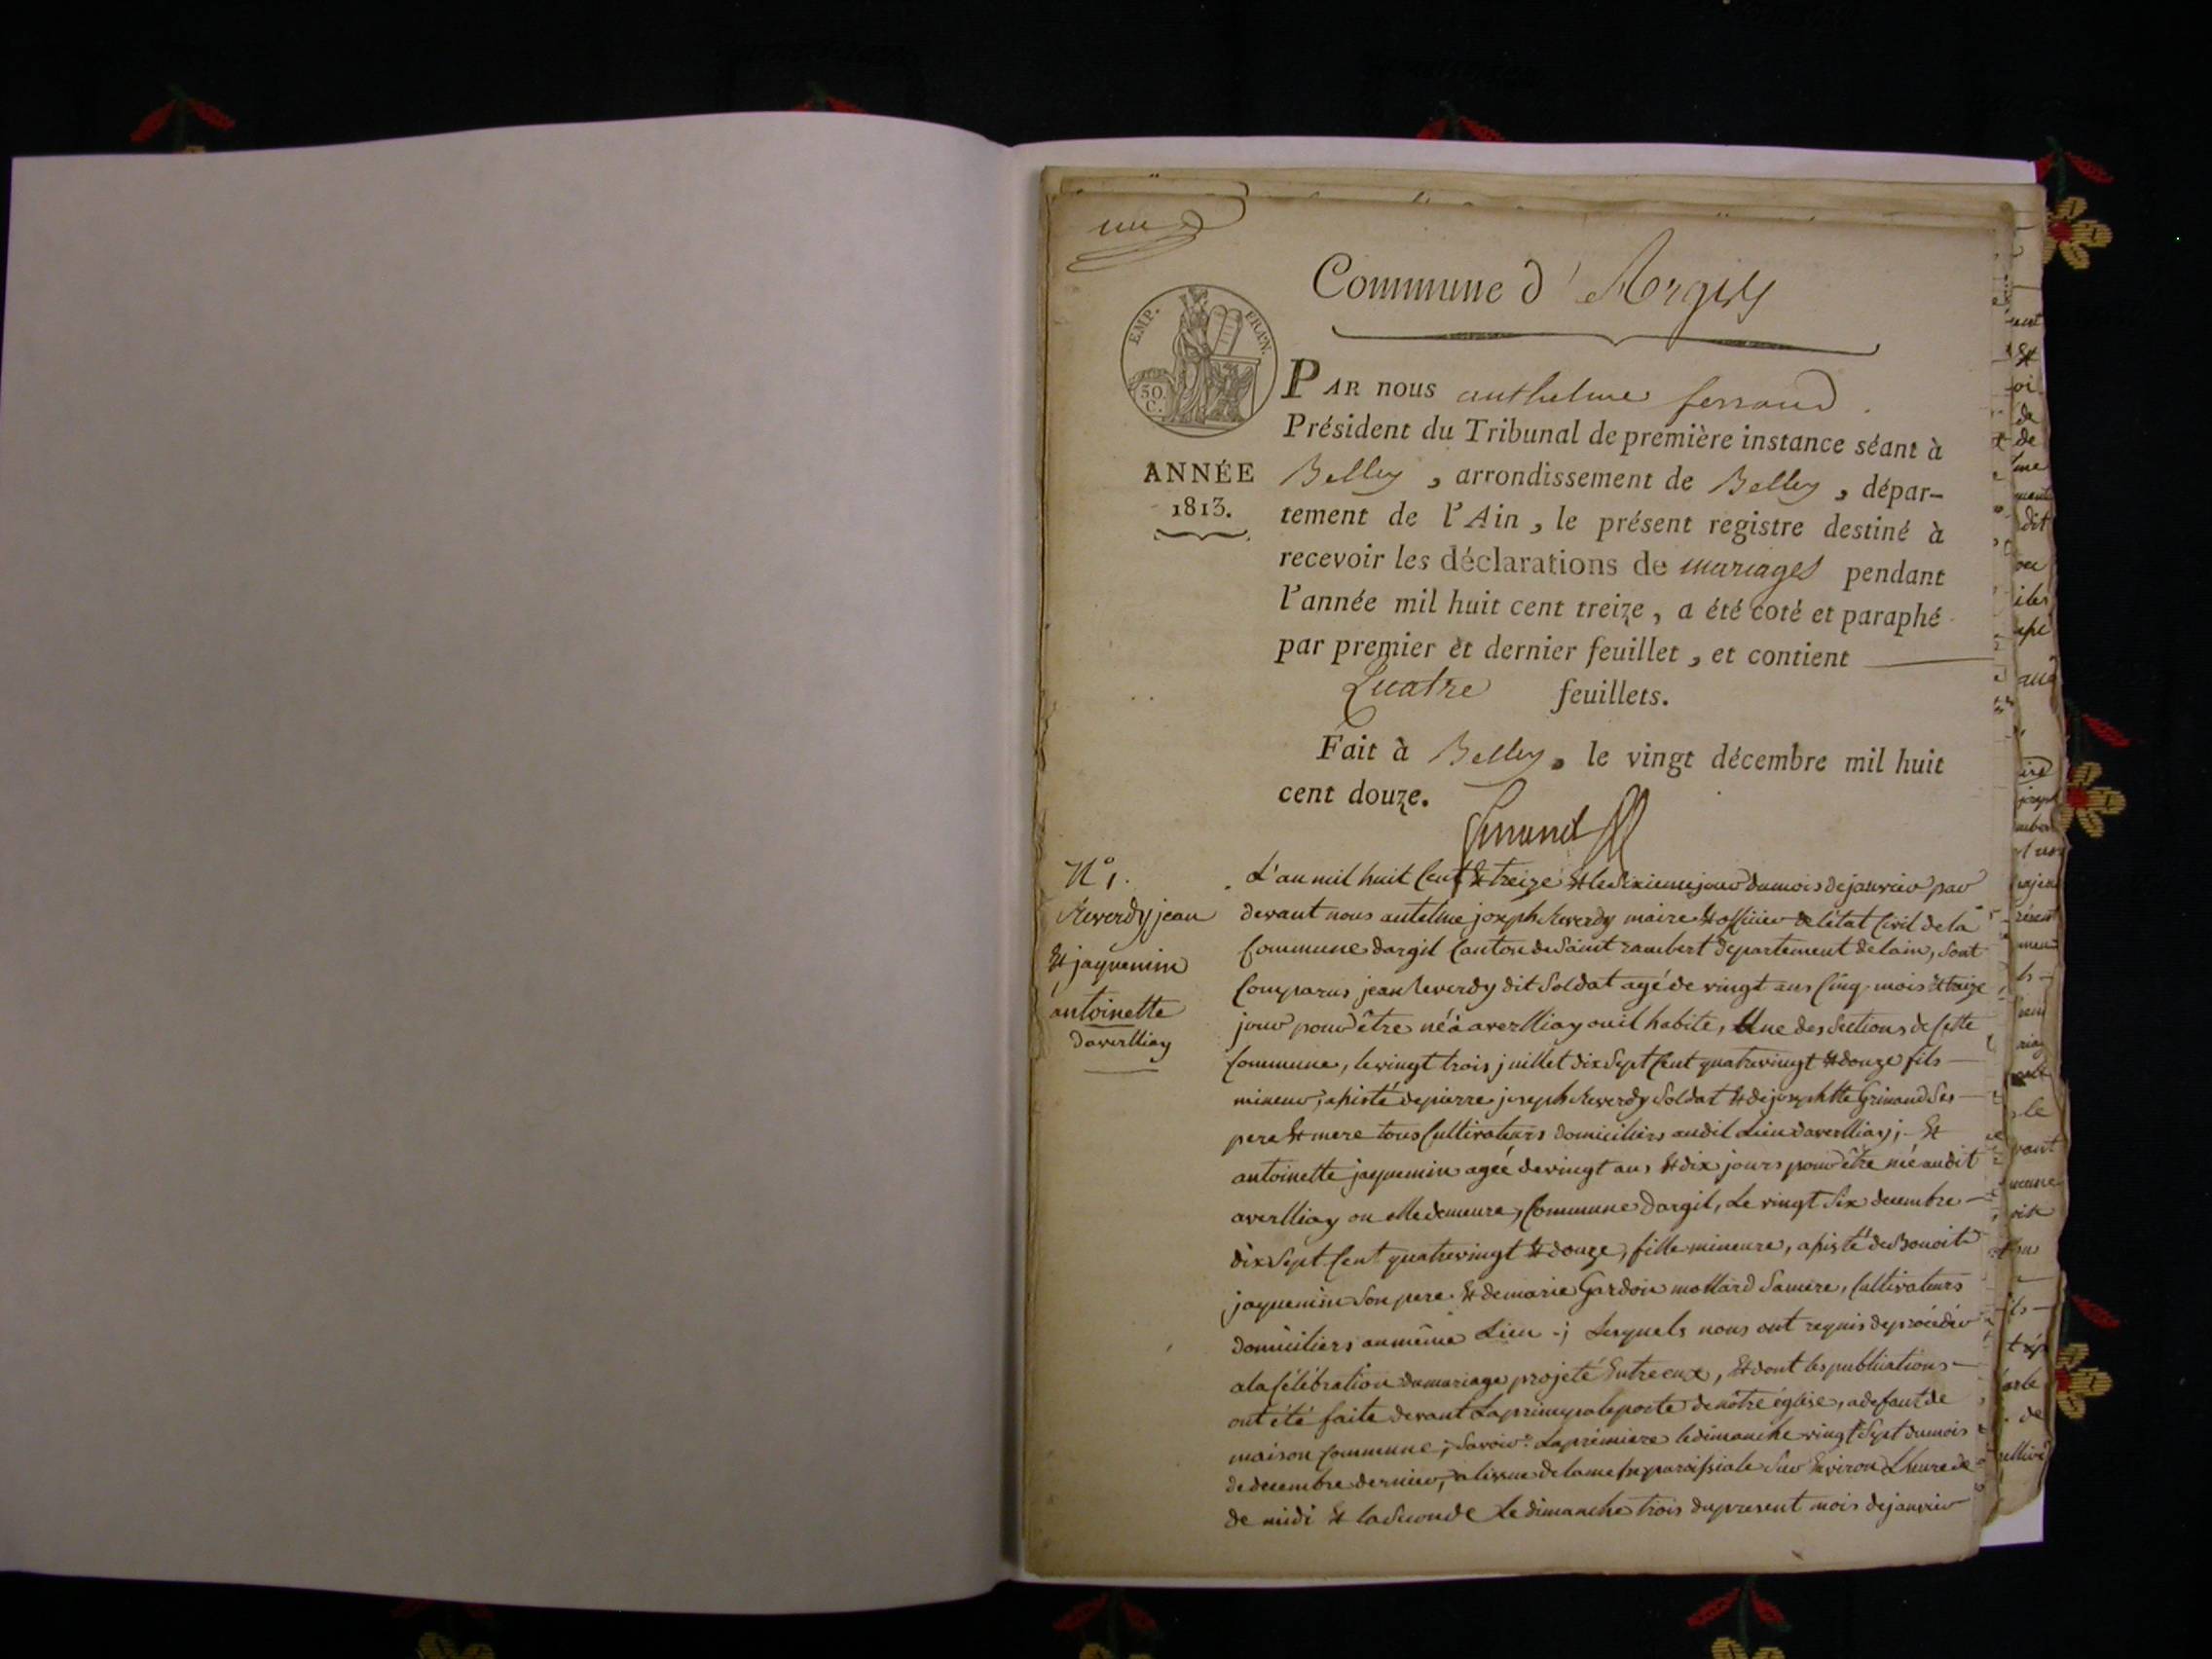 une
Commune d'Argis
EMP. FRAN.
50
C.
ANNÉE
1813.
PAR nous anthelme ferrand
Président du Tribunal de première instance séant à
Belley, arrondissement de Belley, dépar-
tement de l'Ain, le présent registre destiné à
recevoir les déclarations de mariages pendant
l'année mil huit cent treize, a été coté et paraphé
par premier et dernier feuillet, et contient
Quatre feuillets.
Fait à Belley, le vingt décembre mil huit
cent douze.
N° 1.
Reverdy jean
et jaquemin
antoinette
daverlliay
L'an mil huit Cent et treize et le sixieme jour du mois de janvier par
devant nous antelme joseph Reverdy maire et officier de l'état Civil de la
Commune dargil Canton de Saint rambert departement de lain, sont
Comparus jean Reverdy dit Soldat agé de vingt ans Cinq mois et treize
jour pour être né à averlliay ou il habite, Une des Sections de Cette
Commune, le vingt trois juillet dix Sept Cent quatrevingt et douze fils
mineur, asisté de pierre joseph Reverdy Soldat et de josephtte Grinand Ses
pere et mere tous Cultivateurs domiciliers audit Lieu daverlliay; Et
antoinette jaquemin ageé de vingt ans et dix jours pour être née audit
averlliay ou elle demeure, Commune dargil, Le vingt Six decembre
dix Sept Cent quatrevingt et douze, fille mineure, asisté de Benoit
jaquemin Son pere et de marie Gardon mollard Sa mere, Cultivateurs
domiciliers au même Lieu; Lesquels nous ont requis de procéder
a la Célébration du mariage projeté Entre eux, et dont les publications
ont été faite devant La principale porte de nôtre église, a defaut de
maison Commune; Savoir: La premiere le dimanche vingt Sept du mois
de decembre dernier, a lissue de la messe paroissiale Sur Environ L'heure de
de midi et la Seconde Le dimanche trois du present mois de janvier